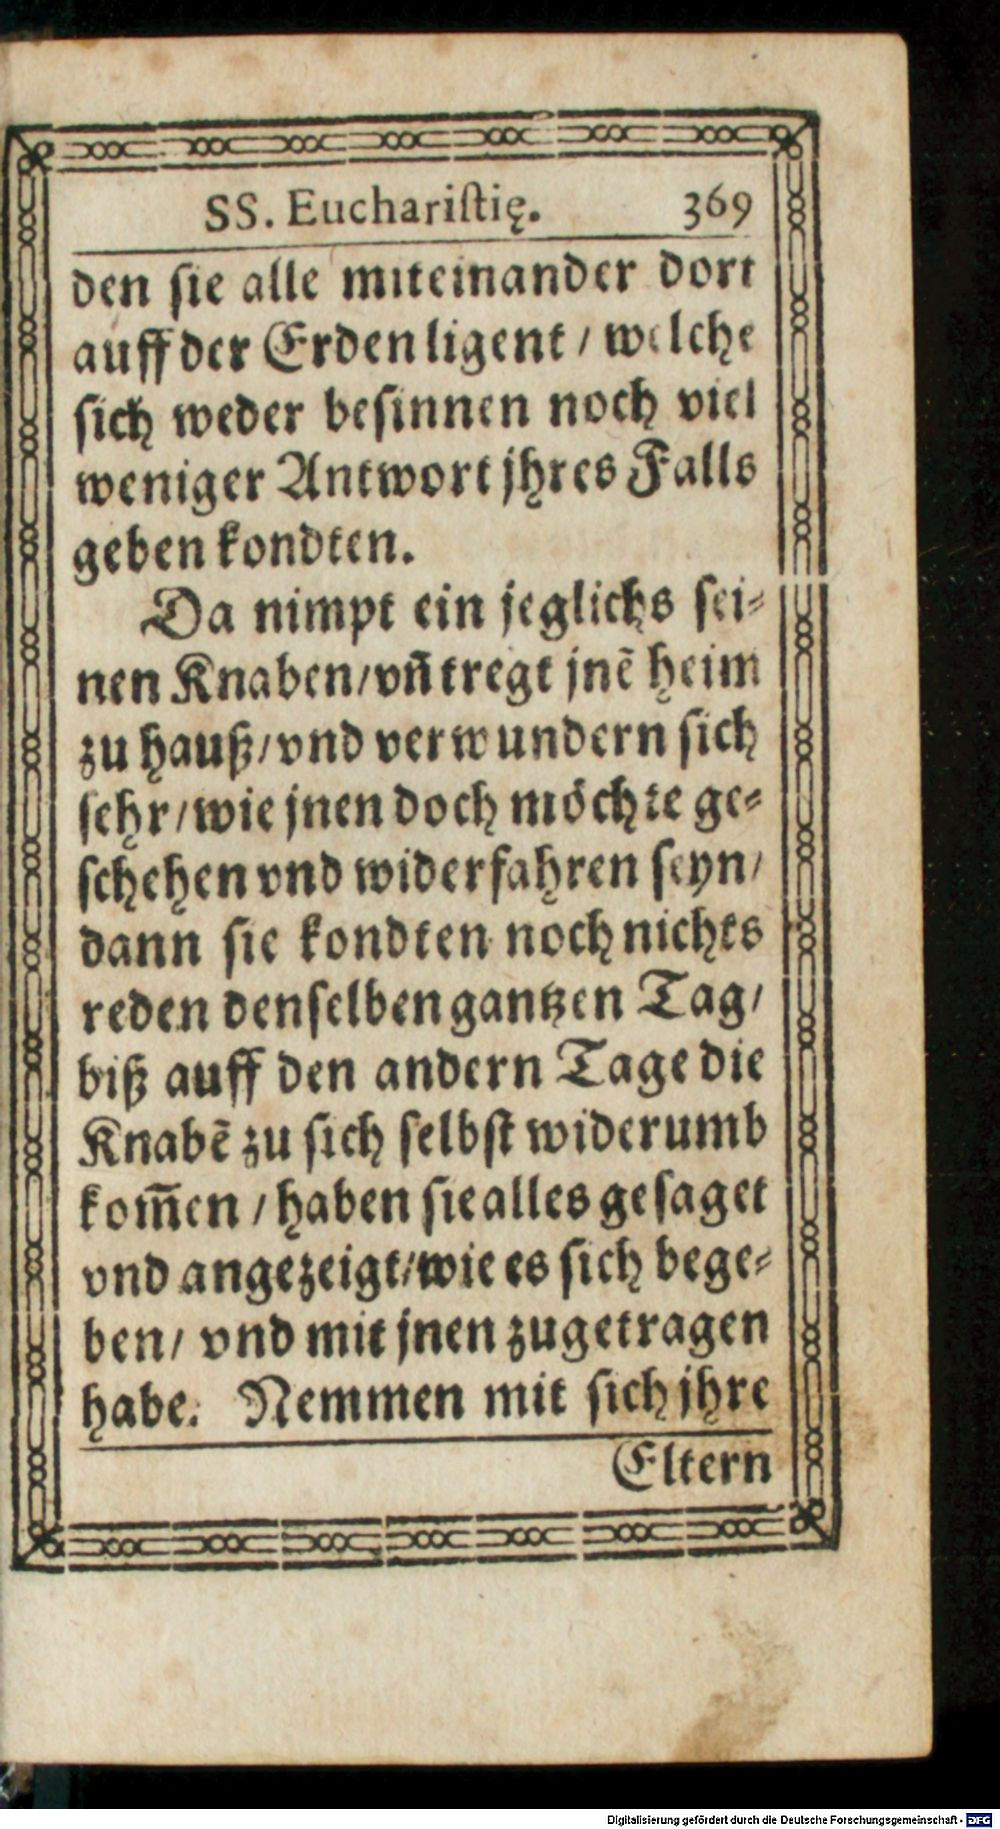 SS. Euchariſtię. 369
den ſie alle miteinander dort
auff der Erden ligent / welche
ſich weder beſinnen noch viel
weniger Antwort jhres Falls
geben kondten.
Da nimpt ein jeglichs ſei⸗
nen Knaben/ vn̄ tregt jnē heim
zu hauß/ vnd verwundern ſich
ſehr/ wie jnen doch möchte ge⸗
ſchehen vnd widerfahren ſeyn/
dann ſie kondten noch nichts
reden denſelben gantzen Tag/
biß auff den andern Tage die
Knabē zu ſich ſelbſt widerumb
kom̄en / haben ſie alles geſaget
vnd angezeigt/ wie es ſich bege⸗
ben/ vnd mit jnen zugetragen
habe. Nemmen mit ſich jhre
Eltern
Digitalisierung gefördert durch die Deutsche Forschungsgemeinschaft - DFG